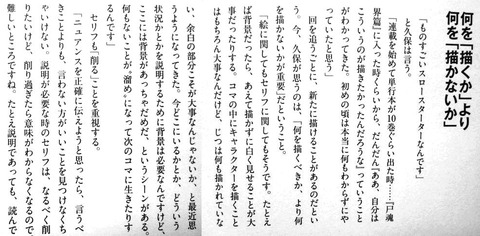 何を「描くか」より
何を「描かないか」
「ものすごいスロースターターなんです」
と久保は言う。
「連載を始めて単行本が10巻ぐらい出た時……『尸魂
界篇』に入った時くらいから、だんだん「ああ、自分は
こういうのが描きたかったんだろうな」っていうこと
がわかってきた。初めの頃は本当に何もわからずにや
っていたと思う」
回を追うごとに、新たに描けることがあるのだとい
う。今、久保が思うのは、「何を描くべきか、より何
を描かないかが重要」だということ。
「絵に関してもセリフに関してもそうです。たとえ
ば背景だったら、あえて描かずに白く見せることが大
事だったりする。コマの中にキャラクターを描くこと
はもちろん大事なんだけど、じつは何も描かれていな
い、余白の部分こそが大事なんじゃないか、と最近思
うようになってきた。今どこにいるかとか、どういう
状況かとかを説明するために背景は必要なんですけど、
ここには背景があっちゃだめだ、というシーンがある。
何もないことが〝溜め〟になって次のコマに生きたりす
るんです」
セリフも〝削る〟ことを重視する。
「ニュアンスを正確に伝えようと思ったら、言うべ
きことよりも、言わない方がいいことを見つけなくち
ゃいけない。説明が必要な時のセリフは、なるべく削
りたいけど、削り過ぎたら意味がわからなくなるので、
難しいところですね。たとえ説明であっても、読んで